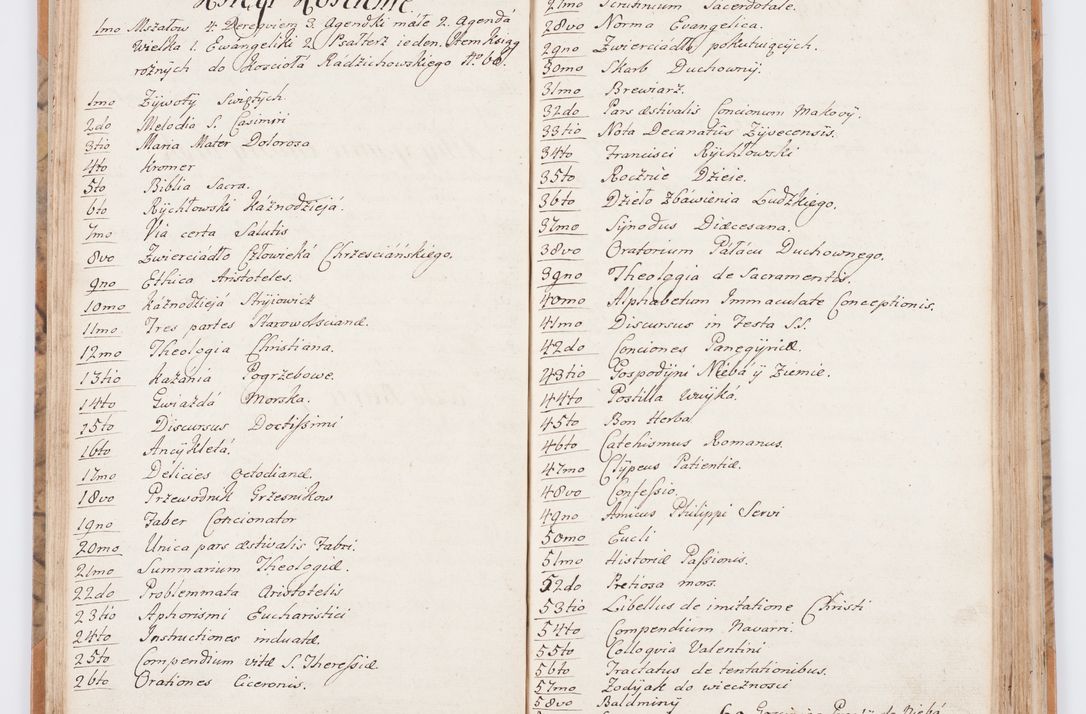 Księgi Kościelne.
1mo Mszałow 4. Derequiem 3. Agendki małe 2. Agendá
Wielka 1. Ewangeliki 2. Psałterz ieden. Item ksiąg
rożnych do Kosciołá Rádzichowskiego No 66.
1mo Zÿwotÿ Swiętÿch.
2do Melodia S. Casimiri
3tio Maria Mater Dolorosa
4to Kromer
5to Biblia Sacra.
6to Rÿchłowski Káznodzieiá.
7mo Via certa Salutis
8vo Zwierciadło Człowieká Chrzesciáńskiego.
9no Ethica Aristoteles.
10mo Káznodzieiá Strÿiowicz
11mo Tres partes Starowolscianæ.
12mo Theologia Christiana.
13tio Kazania Pogrzebowe.
14to Gwiazdá Morska.
15to Discursus Doctissimi
16to Ancÿkletá.
17mo Delicies Octodianæ.
18vo Przewodnik Grzesnikow
19no Faber Concionator
20mo Unica pars æstivalis Fabri.
21mo Summarium Theologiæ.
22do Problemmata Aristotelis
23tio Aphorismi Eucharistici
24to Instructiones induatæ.
25to Compendium vitæ S. Theressiæ
26to Orationes Ciceronis.
27mo Scrutinium Sacerdotale.
28vo Norma Evangelica.
29no Zwierciadło pokutuiącÿch.
30mo Skarb Duchownÿ.
31mo Brewiarz.
32do Pars æstivalis Concionum Makovÿ.
33tio Nota Decanatûs Zÿvecensis.
34to Francisci Rÿchłowski
35to Rocznie Dzieie.
36to Dzieło Zbáwienia Ludzkiego.
37mo Sÿnodus Diæcesana.
38vo Oratorium Páłácu Duchownego.
39no Theologia de Sacramentis.
40mo Alphabetum Immaculatæ Conceptionis.
41mo Discursus in Festa S.S.
42do Conciones Panegÿricæ.
43tio Gospodÿni Niebá ÿ Ziemie.
44to Postilla Wuÿká.
45to Bon Herba
46to Catehismus Romanus.
47mo Clÿpeus Patientiæ.
48vo Confessio.
49no Amicus Philippi Servi
50mo Eucli
51mo Historiæ Passionis.
52do Pretiosa mors.
53tio Libellus de imitatione Christi
54to Compendium Navarri.
55to Colloqvia Valentini
56to Tractatus de tentationibus.
57mo Zodÿak do wiecznosci
58vo Baldminÿ